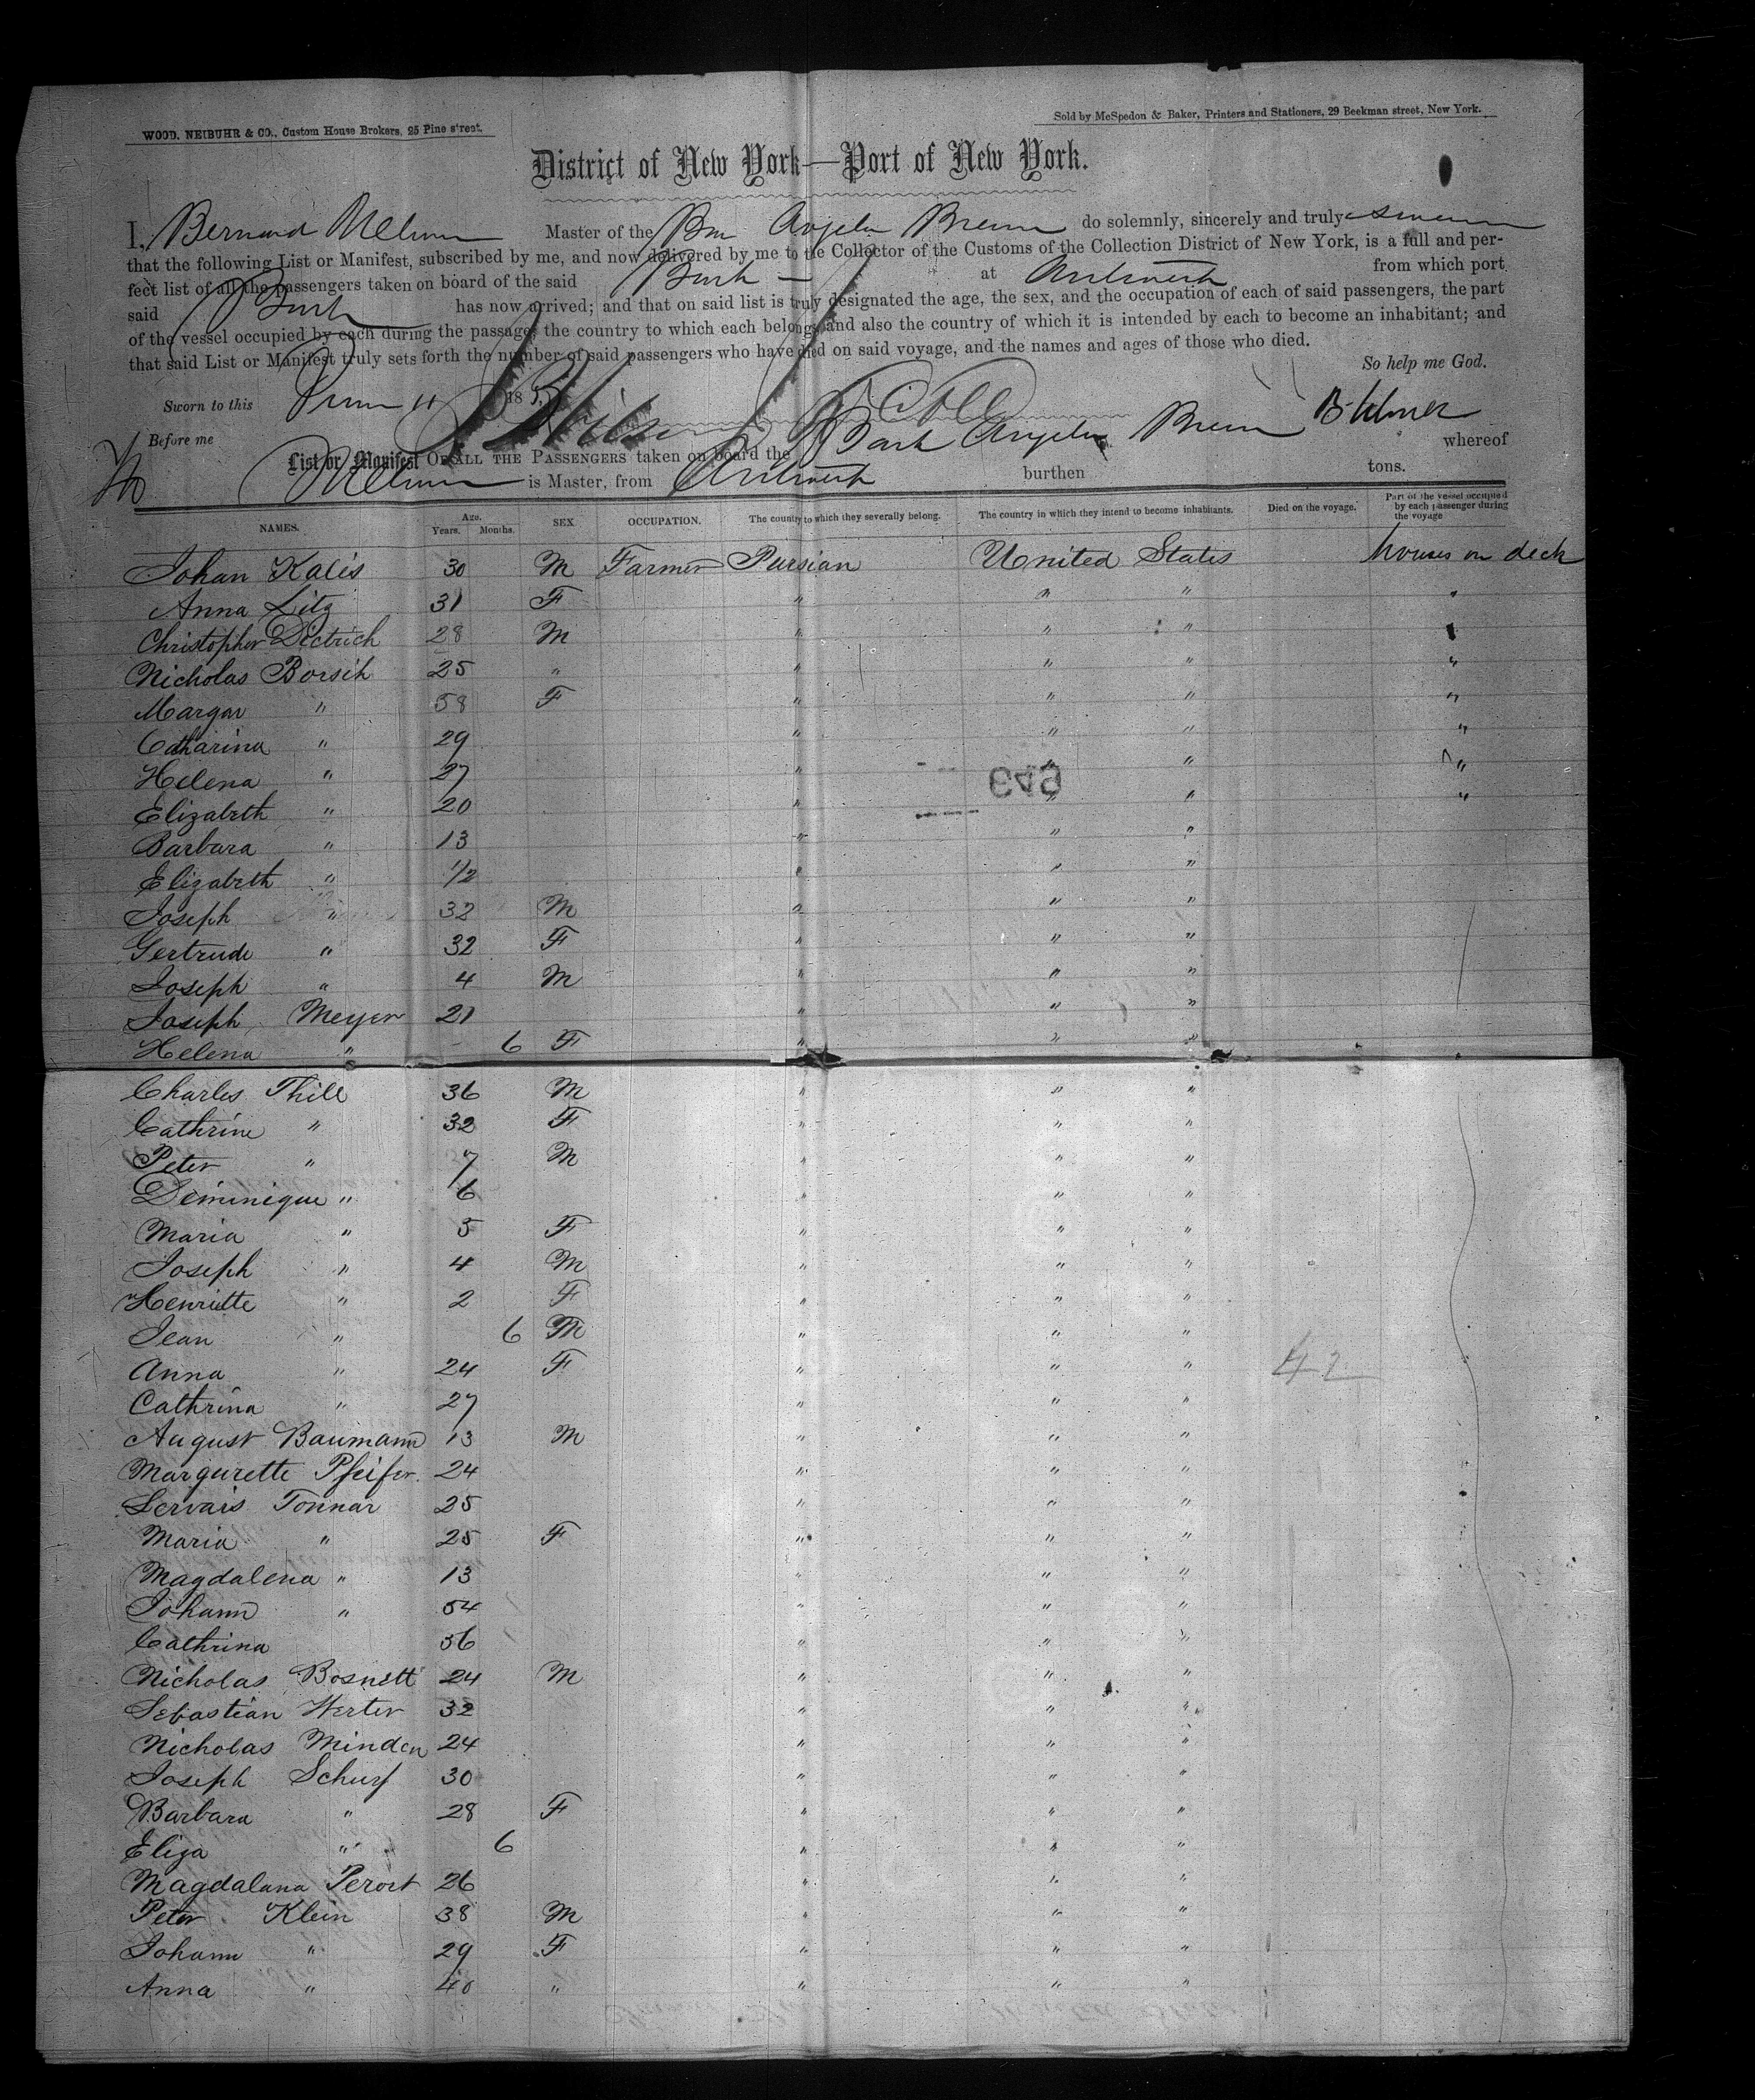 WOOD, NEIBUHR & CO., Custom House Brokers, 25 Pine street.
Sold by McSpedon & Baker, Printers and Stationers, 29 Beekman street, New York.
District of New York—Port of New York.
I, Bernard Master of the Angela do solemnly, sincerely and truly
that the following List or Manifest, subscribed by me, and now delivered by me to the Collector of the Customs of the Collection District of New York, is a full and per-
fect list of all the passengers taken on board of the said Bark at from which port
said Bark has now arrived; and that on said list is truly designated the age, the sex, and the occupation of each of said passengers, the part
of the vessel occupied by each during the passage, the country to which each belongs, and also the country of which it is intended by each to become an inhabitant; and
that said List or Manifest truly sets forth the number of said passengers who have died on said voyage, and the names and ages of those who died.
So help me God.
Sworn to this 185
Before me
List or Manifest OF ALL THE PASSENGERS taken on board the Bark Angela whereof
is Master, from burthen tons.
NAMES. Age. Years. Months. SEX OCCUPATION. The country to which they severally belong. The country in which they intend to become inhabitants. Died on the voyage. Part of the vessel occupied by each passenger during the voyage
Johan Kalis 30 M Farmer Pursian United States houses on deck
Anna Litz 31 F " " " "
Christopher Dietrich 28 M " " "
Nicholas Borsih 25 " " " " "
Margar " 58 F " " " "
Catharina " 29 " " " "
Helena " 27 " " " "
649
Elizabeth " 20 " " " "
Barbara " 13 " " "
Elizabeth " 1/2 " " "
Joseph " 32 M " " "
Gertrude " 32 F " " "
Joseph " 4 M " " "
Joseph Meyer 21 " " "
Helena " 6 F " " "
Charles Thill 36 M " " "
Cathrine " 32 F " " "
Peter " 7 M " " "
Deminique " 6 " " "
Maria " 5 F " " "
Joseph " 4 M " " "
Henriette " 2 F " " "
Jean " 6 M " " "
Anna " 24 F " " " 42
Cathrina " 27 " " "
August Baumann 13 M " " "
Margurette Pfeifer. 24 " " "
Servais Tonnar 25 " " "
Maria " 25 F " " "
Magdalena " 13 " " "
Johann " 54 " " "
Cathrina 36 " " "
Nicholas Bosnett 24 M " " "
Sebastian Werter 32 " " "
Nicholas Minden 24 " " "
Joseph Schurf 30 " " "
Barbara " 28 F " " "
Eliza " 6 " " "
Magdalana Perort 26 " " "
Peter Klein 38 M " " "
Johann " 29 F " " "
Anna " 40 " " " "